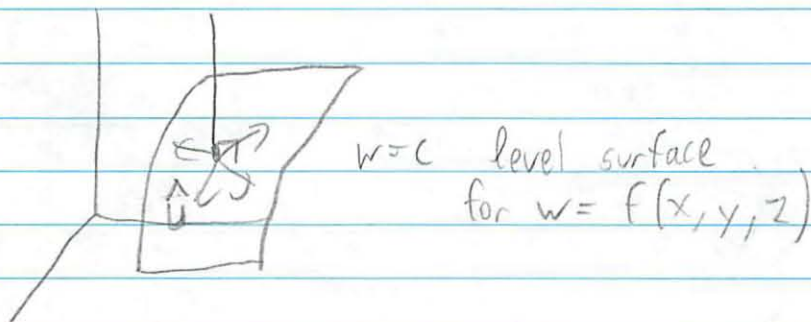 w=c level surface
for w = f(x,y,z)
û